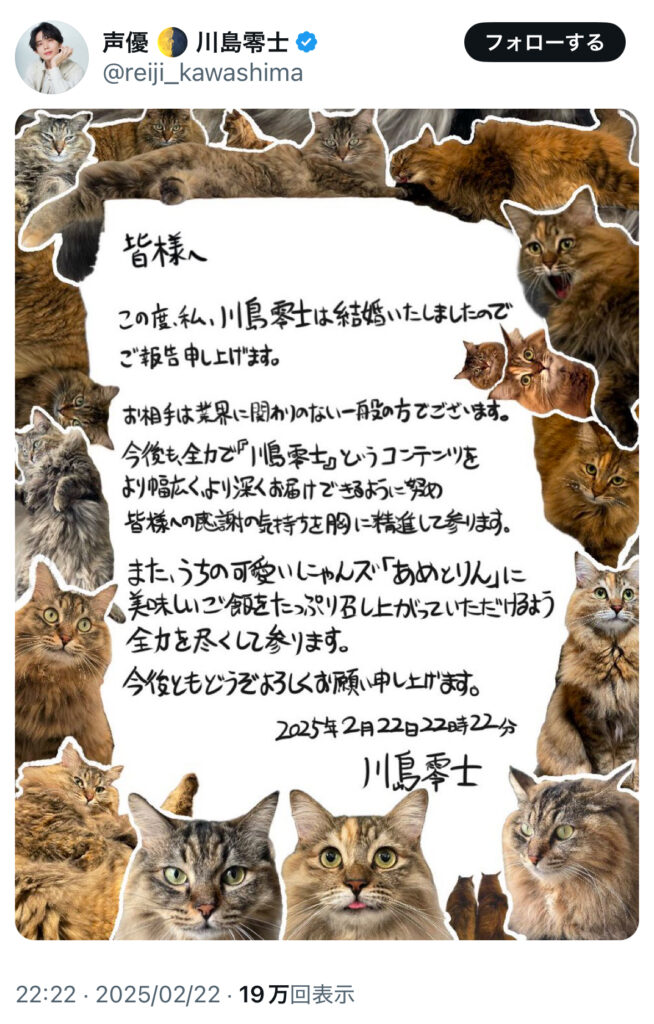 声優 🌗 川島零士
@reiji_kawashima
フォローする
皆様へ
この度、私、川島零士は結婚いたしましたので
ご報告申し上げます。
お相手は業界に関わりのない一般の方でございます。
今後も、全力で『川島零士』というコンテンツを
より幅広く、より深くお届けできるように努め
皆様への感謝の気持ちを胸に精進して参ります。
また、うちの可愛いにゃんズ「あめとりん」に
美味しいご飯をたっぷり召し上がっていただけるよう
全力を尽くして参ります。
今後ともどうぞよろしくお願い申し上げます。
2025年2月22日22時22分
川島零士
22:22 · 2025/02/22 · 19万回表示